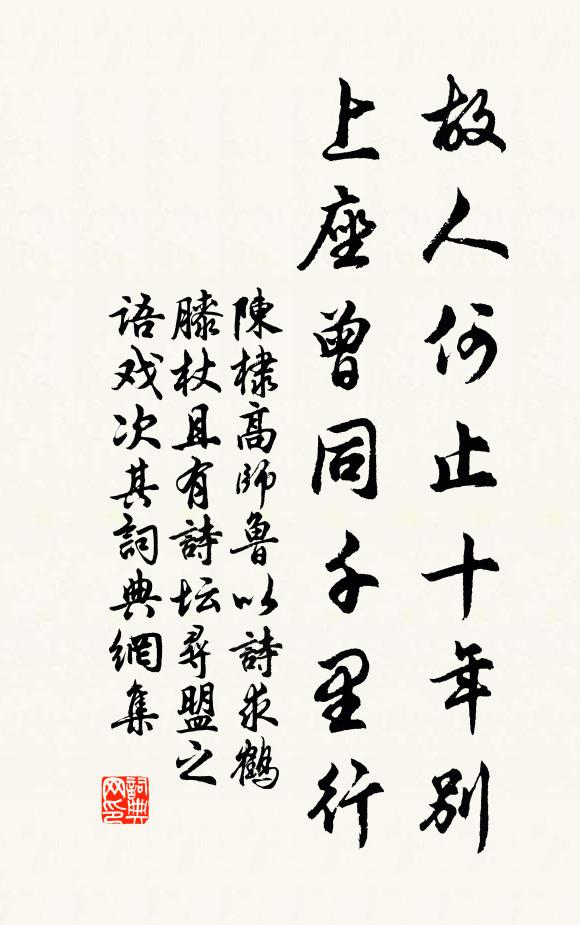 故人何止十年别
上座曾同千里行
陳棣高師魯以詩求鶴
膝杖且有詩坛尋盟之
语戏次其詞典網集
詞典网印